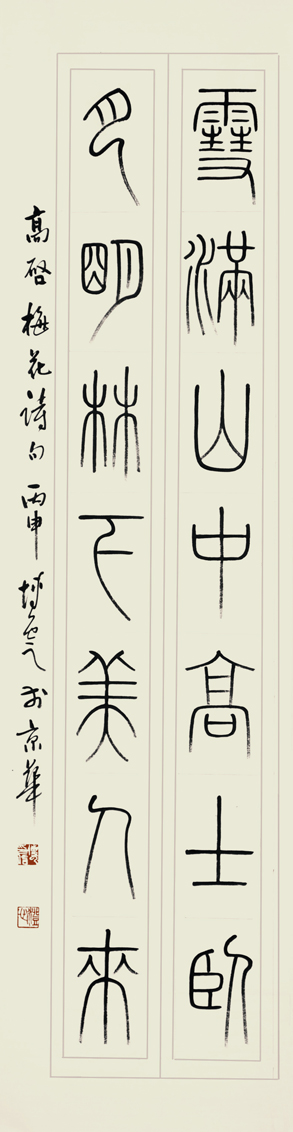 雪滿山中高士臥
月明林下美人來
高啓梅花詩句 丙申 於京華